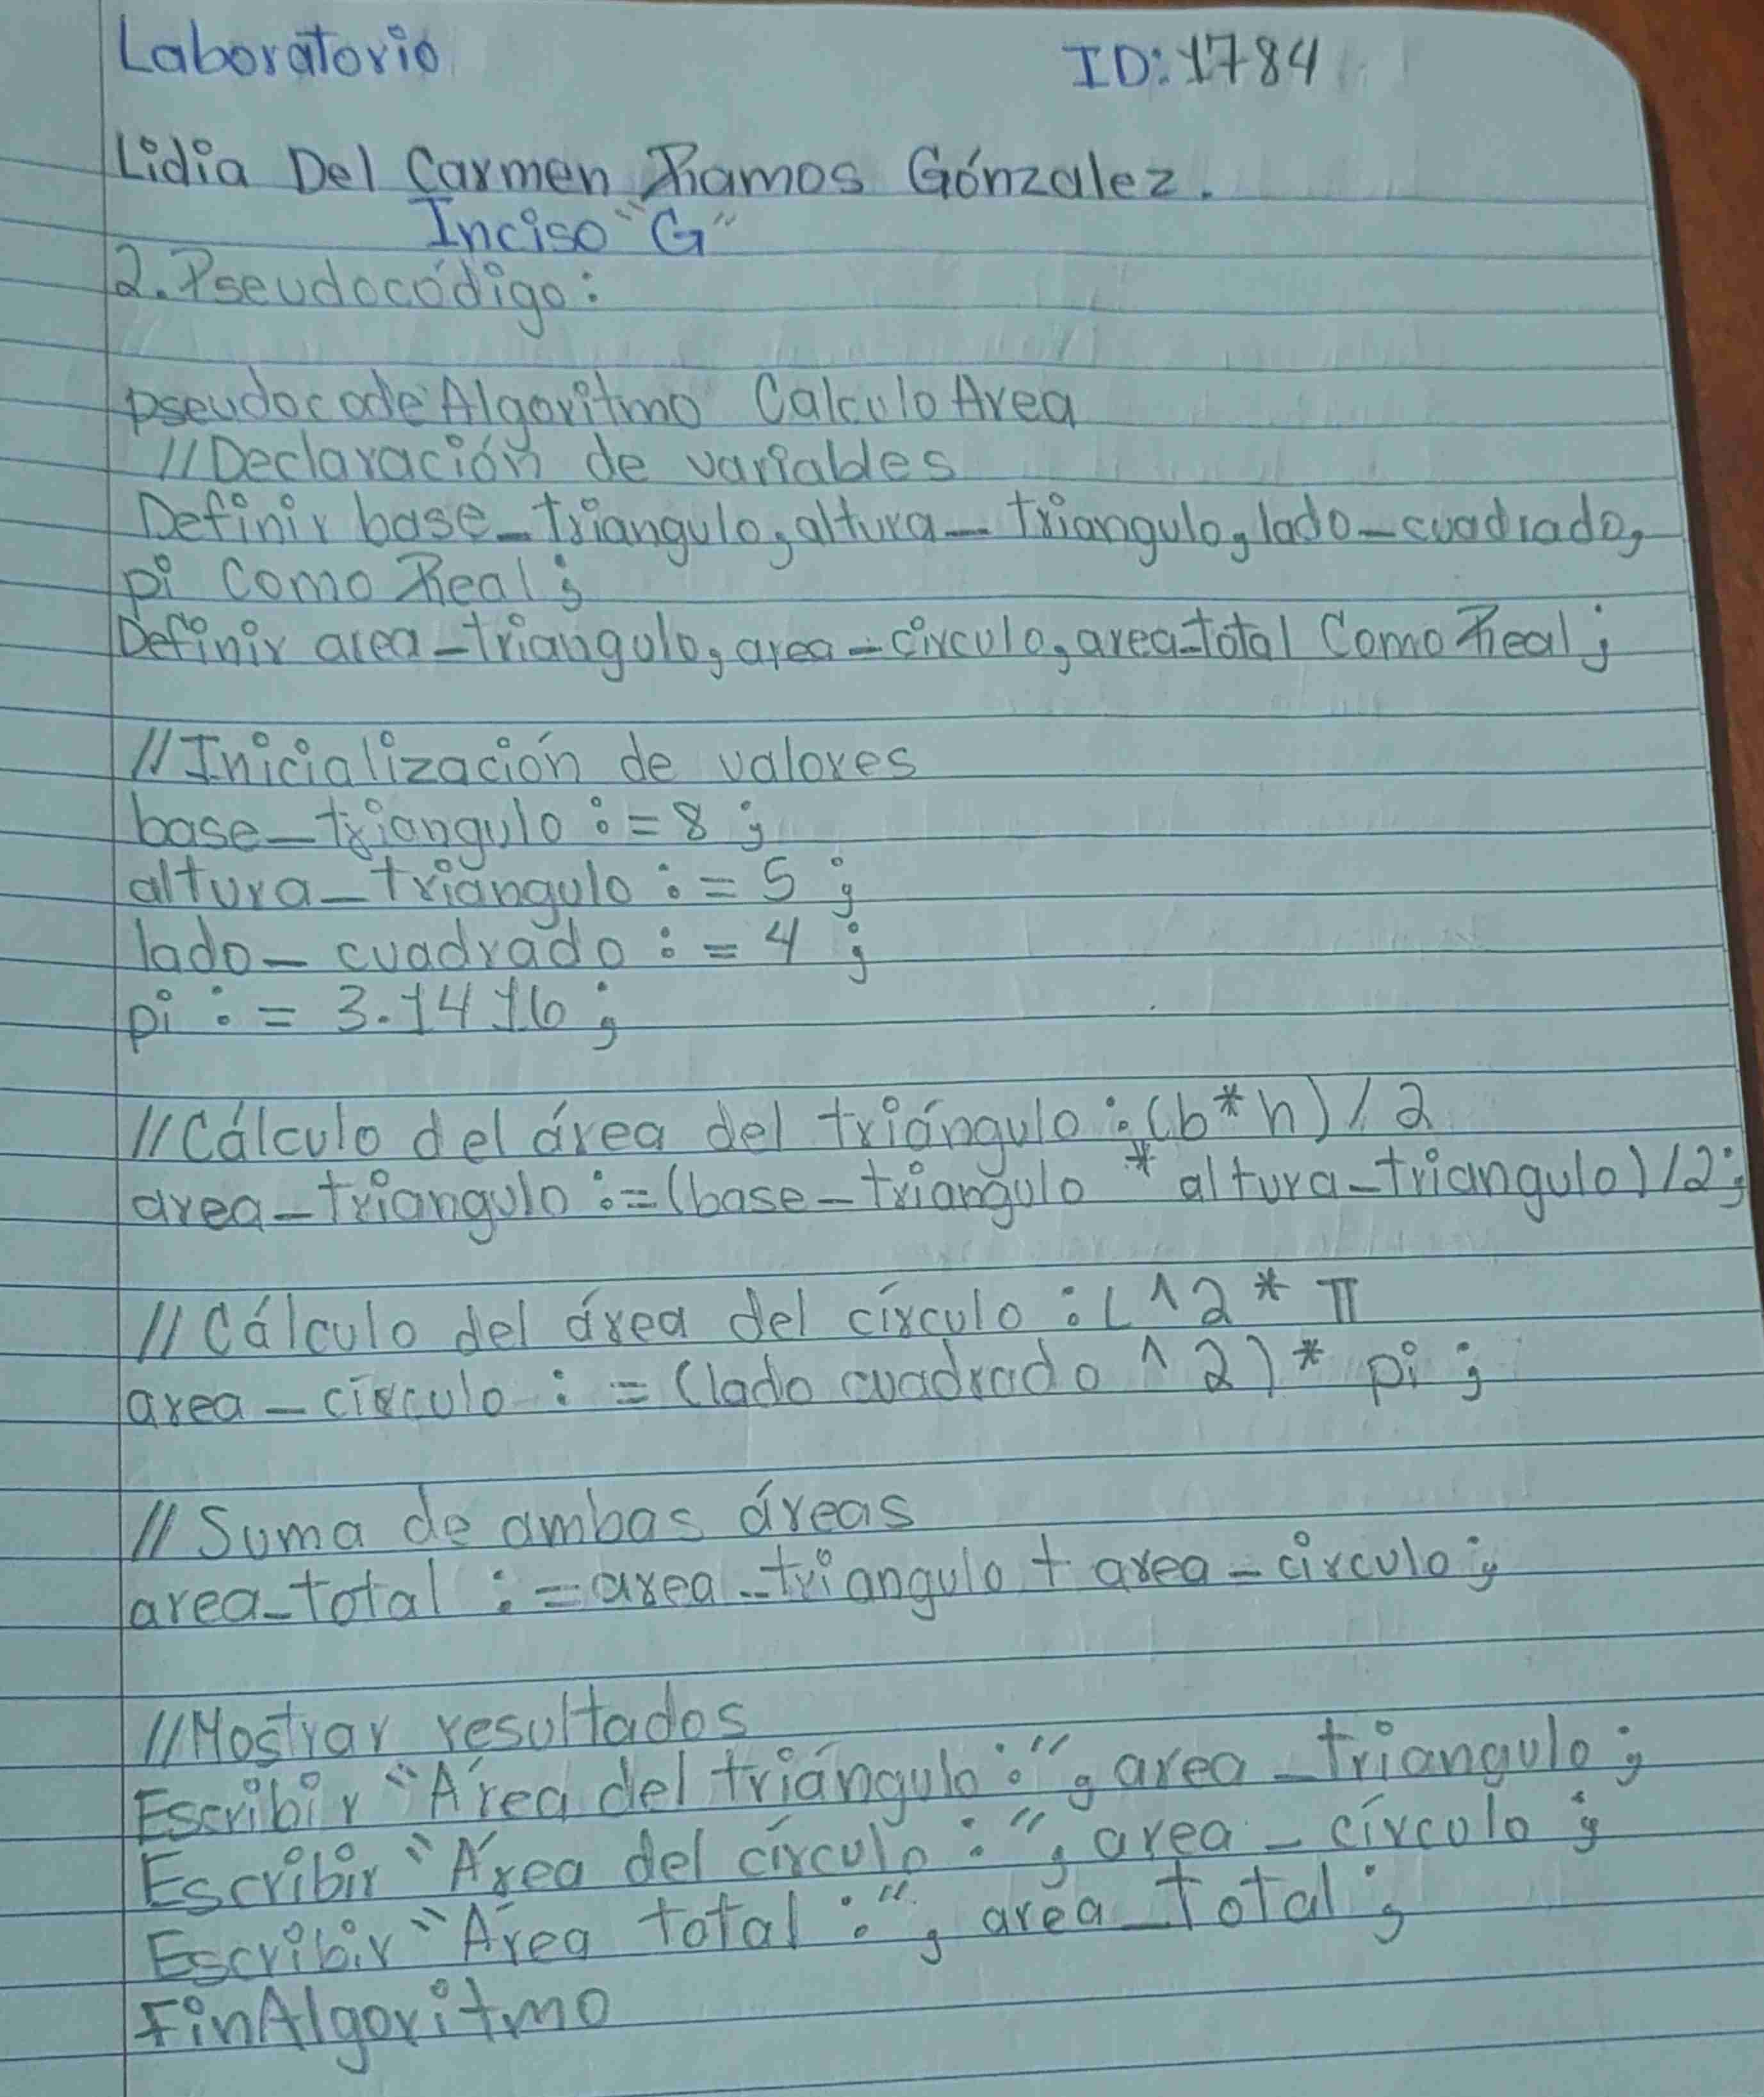 Laboratorio ID: 1784
Lidia Del Carmen Ramos Gónzalez.
Inciso "G"
2. Pseudocódigo:
pseudocode Algoritmo CalculoArea
//Declaración de variables
Definir base_triangulo, altura_triangulo, lado_cuadrado,
pi Como Real;
Definir area_triangulo, area_circulo, area_total Como Real;
//Inicialización de valores
base_triangulo := 8;
altura_triángulo := 5;
lado_cuadrado := 4;
pi := 3.1416;
//Cálculo del área del triángulo: (b*h)/2
area_triangulo := (base_triangulo * altura_triangulo)/2;
//Cálculo del área del círculo: L^2 * π
area_círculo := (lado cuadrado ^ 2) * pi;
//Suma de ambas áreas
area_total := area_triangulo + area_circulo;
//Mostrar resultados
Escribir "Área del triángulo:", area_triangulo;
Escribir "Área del círculo:", area_círculo;
Escribir "Área total:", area_total;
FinAlgoritmo